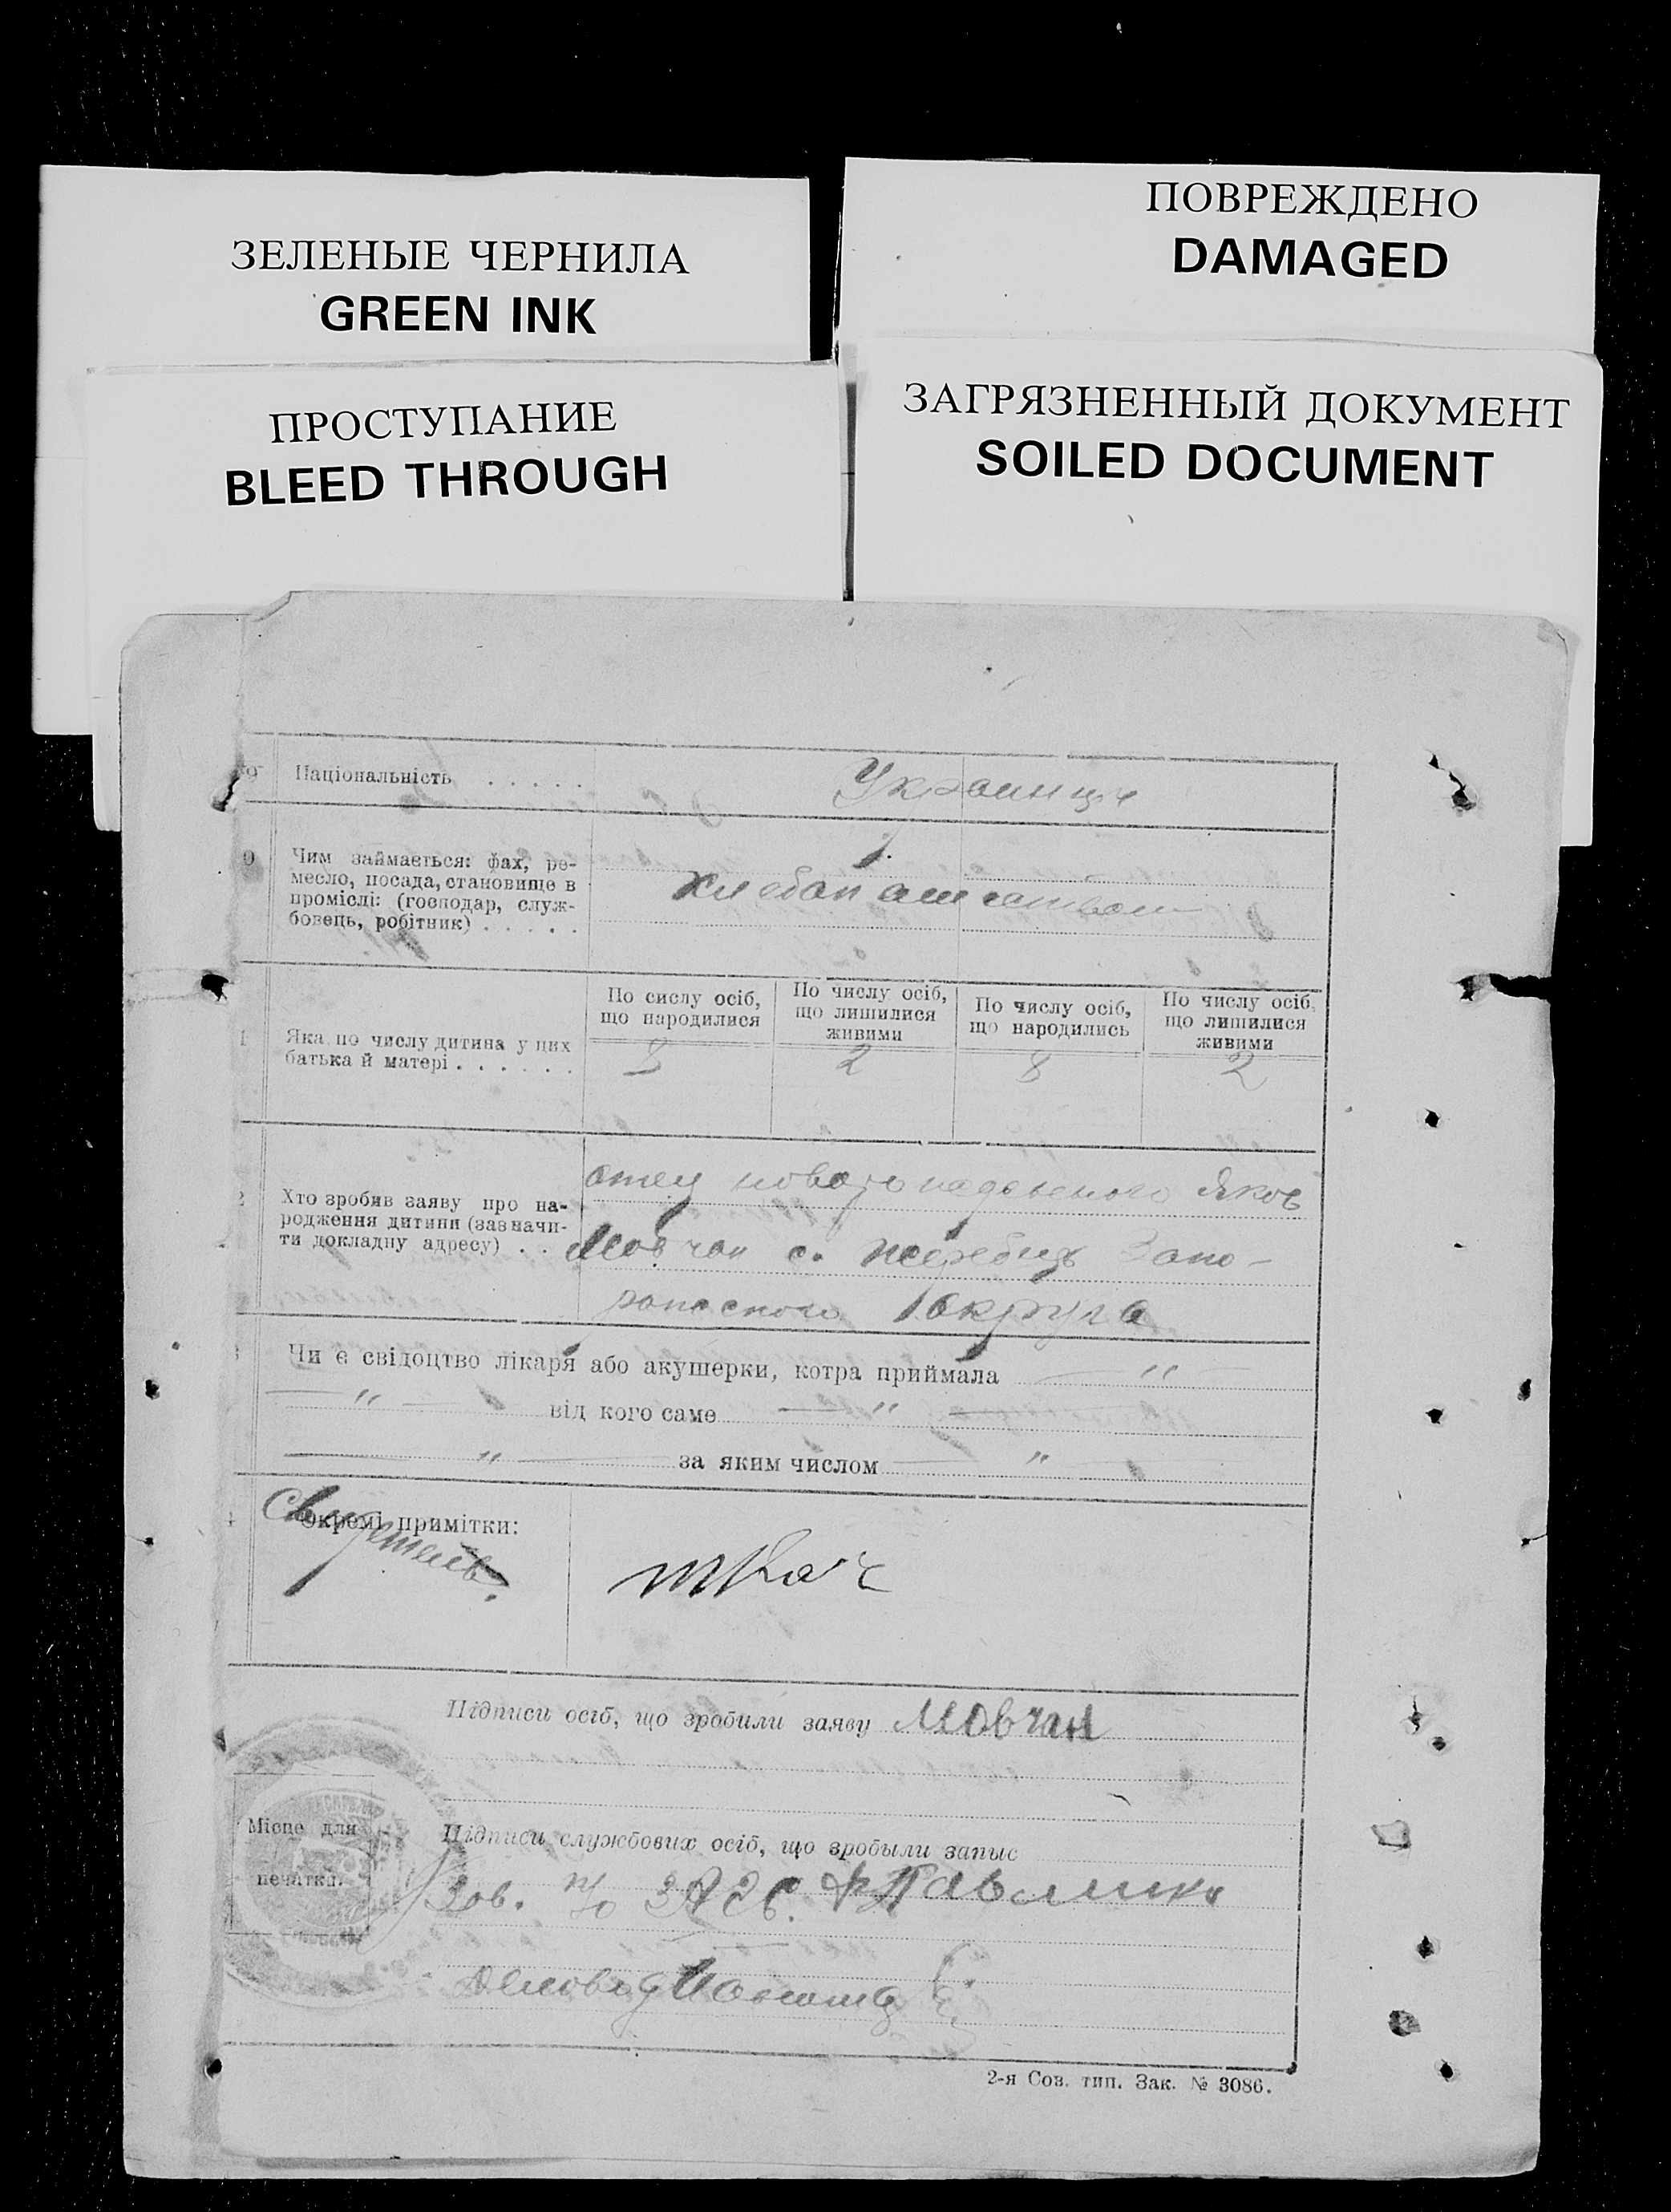 ЗЕЛЕНЫЕ ЧЕРНИЛА
GREEN INK
ПОВРЕЖДЕНО
DAMAGED
ПРОСТУПАНИЕ
BLEED THROUGH
ЗАГРЯЗНЕННЫЙ ДОКУМЕНТ
SOILED DOCUMENT
9 Національність . . . . . Украинци
0 Чим займається: фах, ре-
месло, посада, становище в
проміслі: (господар, служ-
бовець, робітник) . . . . .
хлебопашеством
1 Яка по числу дитина у цих
батька й матері . . . . . .
По сислу осіб,
що народилися
По числу осіб,
що лишилися
живими
По числу осіб,
що народились
По числу осіб,
що лишилися
живими
8 2 8 2
2 Хто зробив заяву про на-
родження дитини (зазначи-
ти докладну адресу) . .
отец Яков
Мовчан с. Жеребец Запо-
округа
3 Чи є свідоцтво лікаря або акушерки, котра приймала — "
— " — від кого саме — " —
— " — за яким числом — " —
4 Окремі примітки:
Свидетель
ткач
Підписи осіб, що зробили заяву Мовчан
Місце для
печатки.
Підписи службових осіб, що зробыли запыс
Зав. п/о ЗАГС
Діловод
2-я Сов. тип. Зак. № 3086.